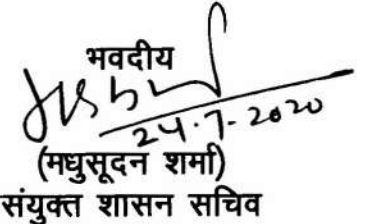 भवदीय
24.7.2020
(मधुसूदन शर्मा)
संयुक्त शासन सचिव